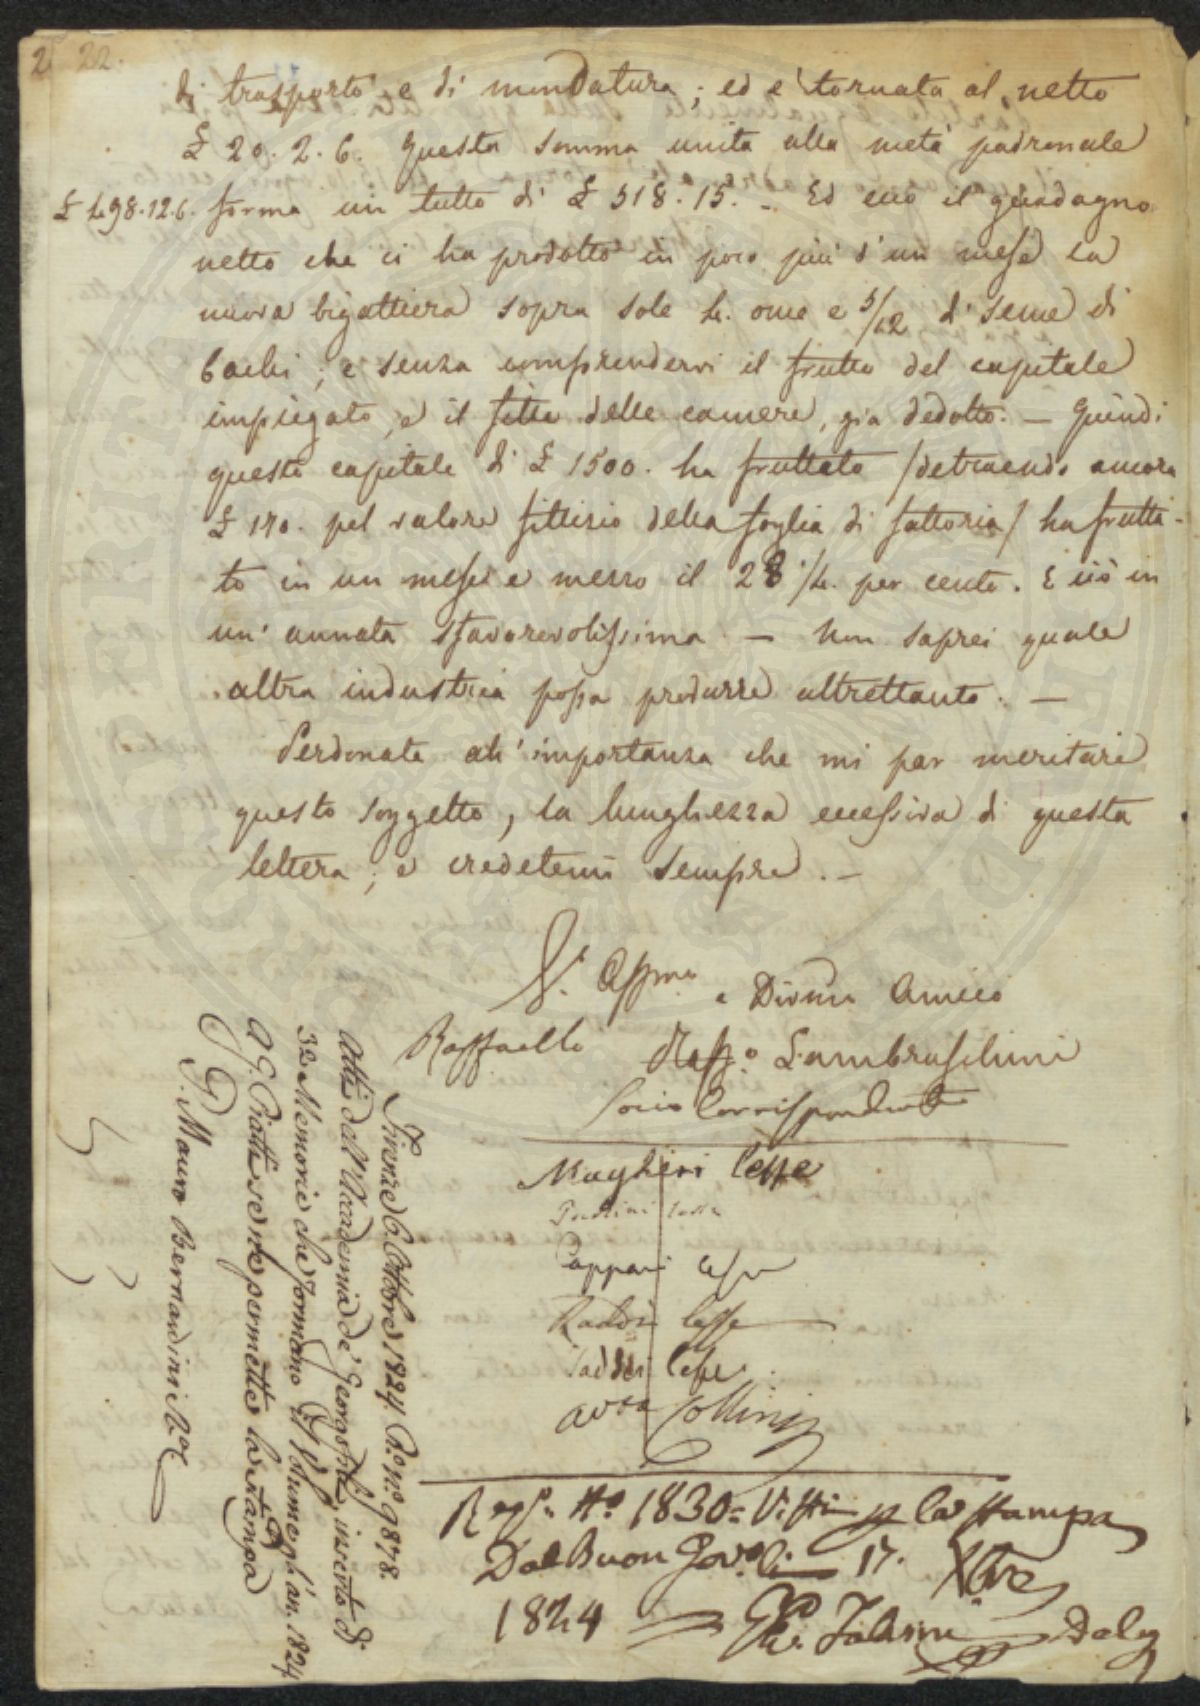 2 22.
di trasporto e di mondatura; ed è tornata al netto
£ 20. 2. 6. Questa somma unita alla metà padronale
£ 498.12.6. forma un tutto di £ 518. 15. - Ed ecco il guadagno
netto che ci ha prodotto in poco più d'un mese la
nuova bigattiera sopra sole 4. once e 5/12 di seme di
bachi; e senza comprendervi il frutto del capitale
impiegato, e il fitto delle camere, già dedotto. — Quindi
questo capitale di £ 1500. ha fruttato /detraendo ancora
£ 170. pel valore fittizio della foglia di fattoria/ ha frutta-
to in un mese e mezzo il 28 1/4. per cento. E ciò in
un' annata sfavorevolissima — Non saprei quale
altra industria possa produrre altrettanto. —
Perdonate all' importanza che mi par meritare
questo soggetto, la lunghezza eccessiva di questa
lettera; e credetemi sempre. —
V. Affmo. e Divmo Amico
Raffaello Lambruschini
Socio Corrispondente
Magheri lesse
Pappani lesse
Raddi lesse
Taddei lesse
Collini
Regs. No. 1830 = Visti p la stampa
Dal Buon Govo. li 17. Xbre
1824
Firenze 6. Ottobre 1824. Rº. nº. 9878.
Atti dell'Accademia de' Georgofili, inserto di
32 Memorie che formano il Volume, gl'an. 1824
A G. Piatti se ne permette la stampa
P. Mauro Bernardini Rˢ. Cᵉ